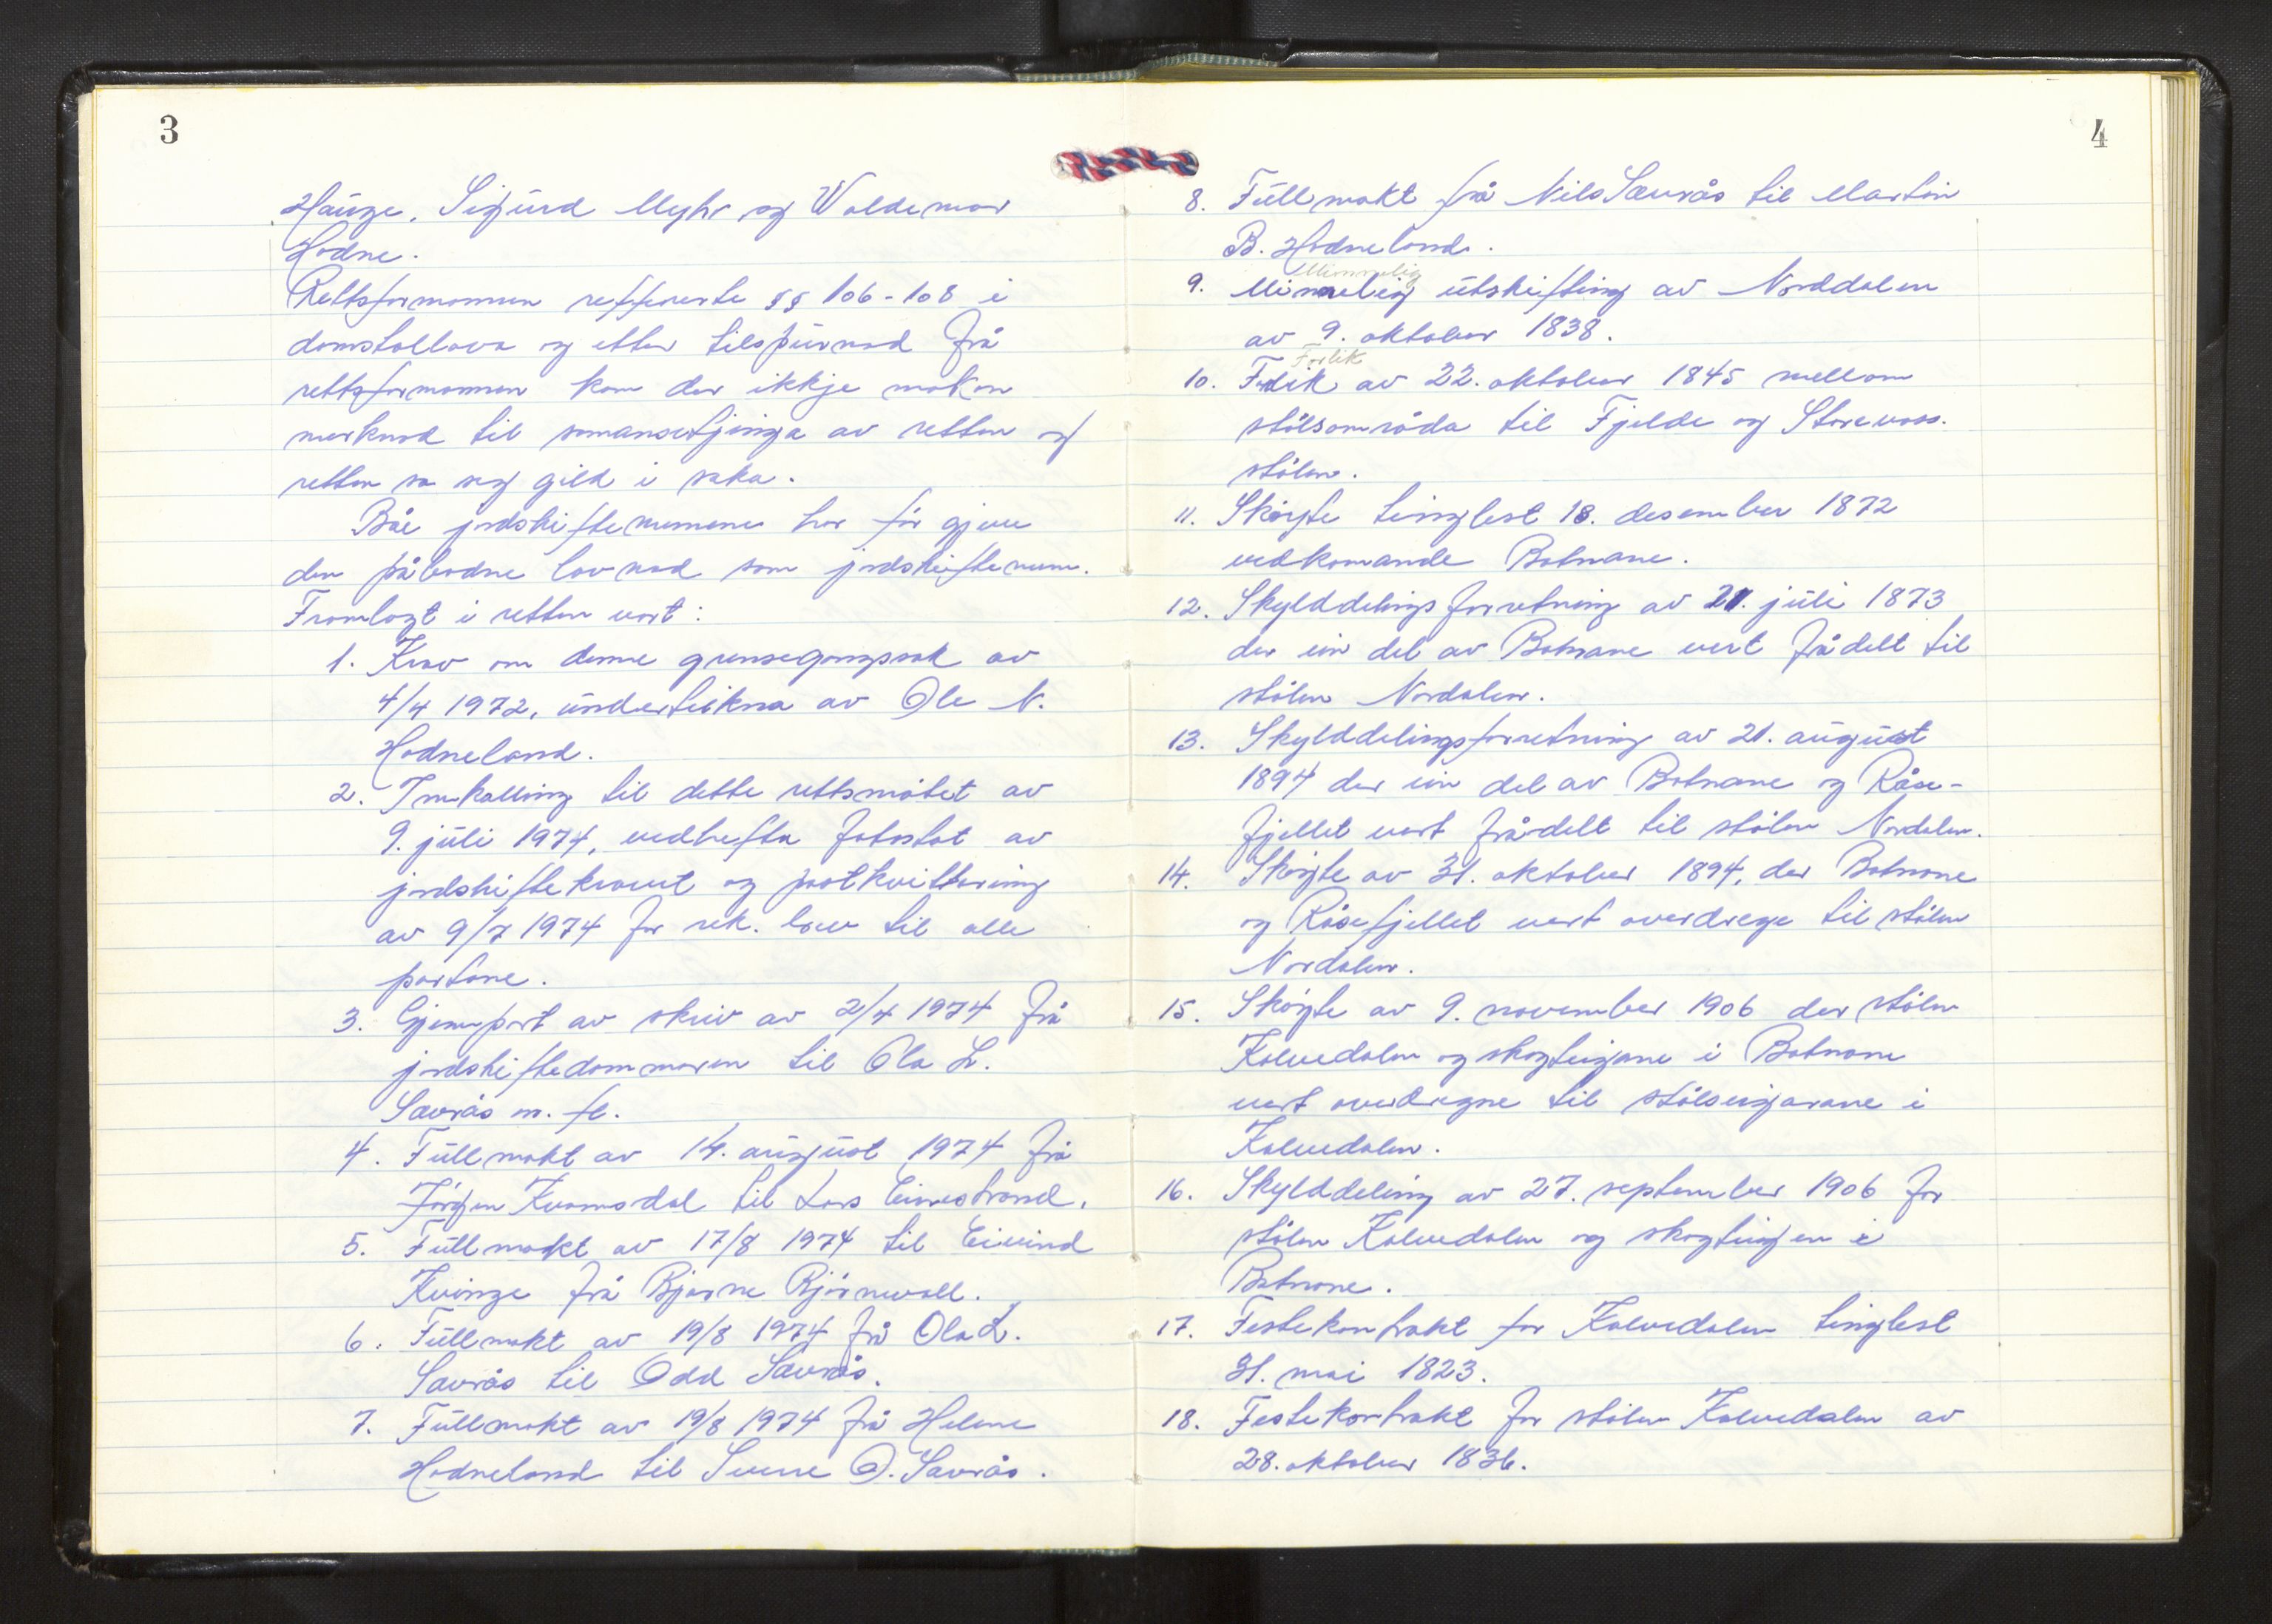 3
Hauge, Sigurd Myhr og Waldemar
Hodne.
Rettsformannen refererte §§ 106-108 i
domstollova og etter tilspurnad frå
rettsformannen kom der ikkje nokon
merknad til samansetjinga av retten og
retten sa seg gild i saka.
Båe jordskiftemennene har før gjeve
den påbodne lovnad som jordskiftemenn.
Framlagt i retten vart:
1. Krav om denne grensegangssak av
4/4 1972, underteikna av Ole N.
Hodneland.
2. Innkalling til dette rettsmøtet av
9. juli 1974, vedhefta fotostat av
jordskiftekravet og postkvittering
av 9/7 1974 for rek. brev til alle
partane.
3. Gjenpart av skriv av 2/4 1974 frå
jordskiftedommaren til Ola L.
Sævrås m. fl.
4. Fullmakt av 14. august 1974 frå
Jørgen Kvamsdal til Lars Eimstrand.
5. Fullmakt av 17/8 1974 til Eivind
Kvinge frå Bjarne Bjørnevoll.
6. Fullmakt av 19/8 1974 frå Ola L.
Sævrås til Odd Sævrås.
7. Fullmakt av 19/8 1974 frå Helene
Hodneland til Sverre O. Sævrås.
4
8. Fullmakt frå Nils Sævrås til Martin
B. Hodneland.
Minnelig
9. Minnelig utskifting av Norddalen
av 9. oktober 1838.
Forlik
10. Forlik av 22. oktober 1845 mellom
stølsområda til Fjelde og Storevass-
stølen.
11. Skøyte tinglest 18. desember 1872
vedkomande Botnane.
12. Skylddelingsforretning av 21. juli 1873
der ein del av Botnane vert frådelt til
stølen Nordalen.
13. Skylddelingsforretning av 21. august
1894 der ein del av Botnane og Råse-
fjellet vart frådelt til stølen Nordalen.
14. Skøyte av 31. oktober 1894, der Botnane
og Råsefjellet vert overdrege til stølen
Nordalen.
15. Skøyte av 9. november 1906 der stølen
Kalvedalen og skogteigane i Botnane
vert overdregne til stølseigarane i
Kalvedalen.
16. Skylddeling av 27. september 1906 for
stølen Kalvedalen og skogteigen i
Botnane.
17. Festekontrakt for Kalvedalen tinglest
31. mai 1823.
18. Festekontrakt for stølen Kalvedalen av
28. oktober 1836.